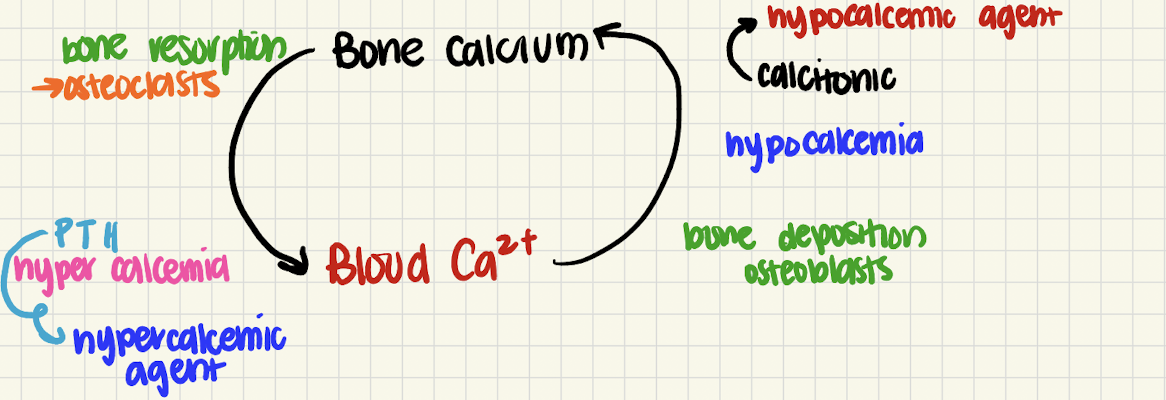 bone resorption
→osteoclasts
Bone calcium
hypocalcemic agent
calcitonic
hypocalcemia
PTH
hyper calcemia
hypercalcemic
agent
Blood Ca²⁺
bone deposition
osteoblasts